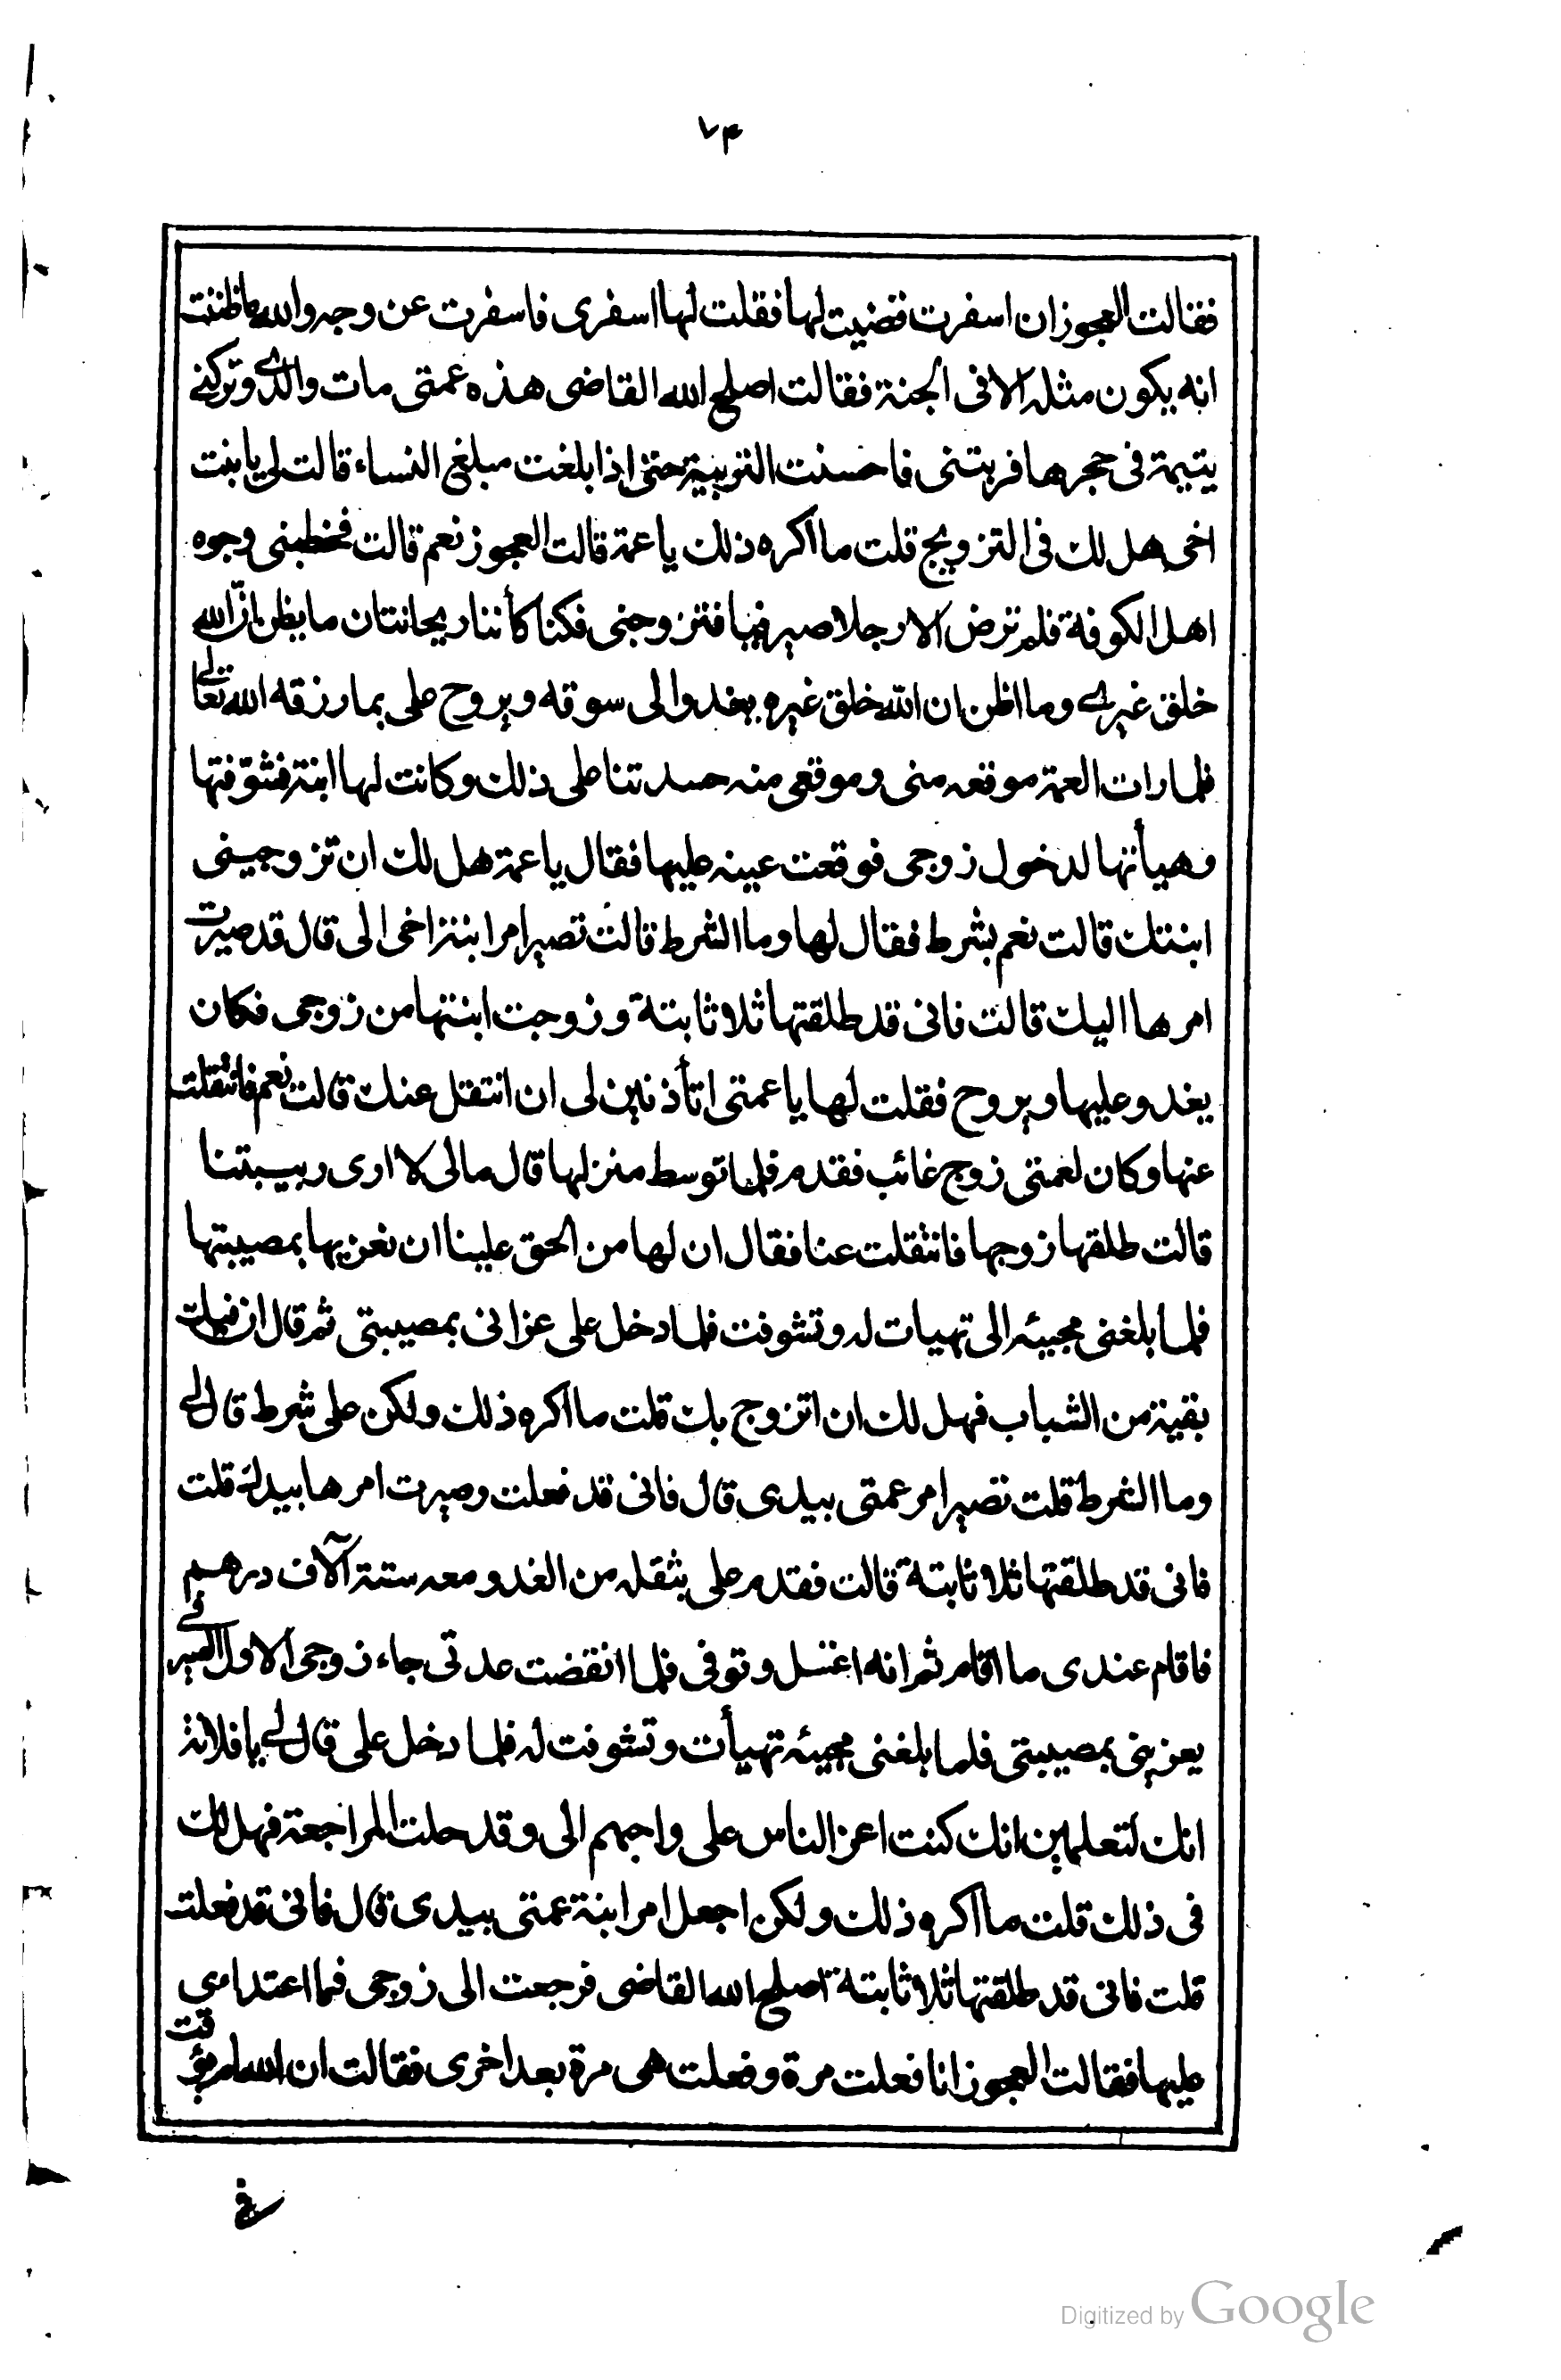 ٧٤
فقالت العجوز ان اسفرت قضيت لها فقلت لها اسفرى فاسفرت عن وجه والله ما ظننت
انه يكون مثله الا فى الجنة فقالت اصلح الله القاضى هذه عمتى مات والدى وتركنى
يتيمة فى حجرها فربتنى فاحسنت التربية حتى اذا بلغت مبلغ النساء قالت لى يا بنت
اخى هل لك فى التزويج قلت ما اكره ذلك يا عمة قالت العجوز نعم قالت فخطبنى وجوه
اهل الكوفة فلم ترض الا رجلا صيرفيا فتزوجنى فكنا كأننا ريحانتان ما يظن ان الله
خلق غيرى وما اظن ان الله خلق غيره يغدو الى سوقه ويروح على بما رزقه الله تعالى
فلما رات العمة موقعه منى وموقعى منه حسدتنا على ذلك وكانت لها ابنة فشوفتها
وهيأتها لدخول زوجى فوقعت عينه عليها فقال يا عمة هل لك ان تزوجينى
ابنتك قالت نعم بشرط فقال لها وما الشرط قالت تصير امر ابنة اخى الى قال قد صيرت
امرها اليك قالت فانى قد طلقتها ثلاثا بتة وزوجت ابنتها من زوجى فكان
يغدو عليها ويروح فقلت لها يا عمتى اتأذنين لى ان انتقل عنك قالت نعم فانتقلت
عنها وكان لعمتى زوج غائب فقدم فلما توسط منزلها قال مالى لا ارى ربيبتنا
قالت طلقها زوجها فانتقلت عنا فقال ان لها من الحق علينا ان نعزيها بمصيبتها
فلما بلغنى مجيئه الى تهيات له وتشوفت فلما دخل على عزانى بمصيبتى ثم قال ان فيك
بقية من الشباب فهل لك ان اتزوج بك قلت ما اكره ذلك ولكن على شرط قال لى
وما الشرط قلت تصير امر عمتى بيدى قال فانى قد فعلت وصيرت امرها بيدك قلت
فانى قد طلقتها ثلاثا بتة قالت فقدم على بثقله من الغد ومعه ستة آلاف درهم
فاقام عندى ما اقام ثم انه اعتل وتوفى فلما انقضت عدتى جاء زوجى الاول الصيرفى
يعزينى بمصيبتى فلما بلغنى مجيئه تهيأت وتشوفت له فلما دخل على قال لى يا فلانة
انك لتعلمين انك كنت اعز الناس على واحبهم الى وقد حلت المراجعة فهل لك
فى ذلك قلت ما اكره ذلك ولكن اجعل امر ابنة عمتى بيدى قال فانى قد فعلت
قلت فانى قد طلقتها ثلاثا بتة اصلح الله القاضى فرجعت الى زوجى فما اعتدامى
عليها فقالت العجوز انا فعلت مرة وفعلت هى مرة بعد اخرى فقالت ان الله لم يؤقت
فى
Digitized by Google